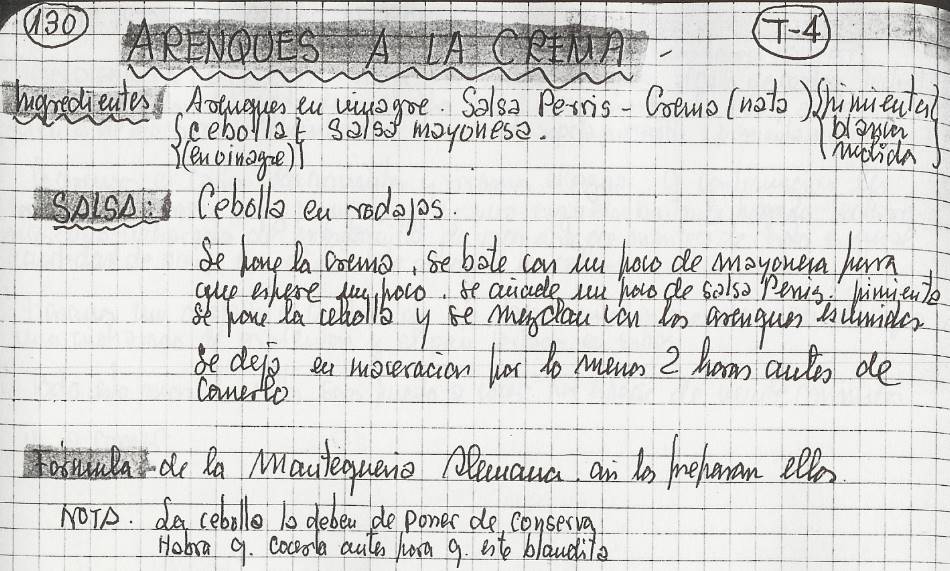 130
T-4
ARENQUES A LA CREMA
Ingredientes Arenques en vinagre. Salsa Perris - Crema (nata) pimienta
cebolla Salsa mayonesa. blanca
(en vinagre) molida
SALSA: Cebolla en rodajas.
Se pone la crema, se bate con un poco de mayonesa para
que espese un poco. se añade un poco de salsa Perris. pimienta
se pone la cebolla y se mezclan con los arenques escurridos
Se deja en maceracion por lo menos 2 horas antes de
comerlo
Fórmula - de la Mantequeria Alemana. asi los preparan ellos.
NOTA. La cebolla la deben de poner de conserva
Habra q. cocerla antes para q. este blandita